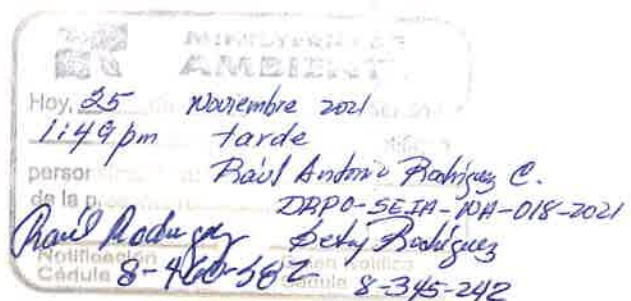 MINISTERIO DE
AMBIENTE
Hoy, 25 de Noviembre 2021
1:49 pm tarde
Raúl Antonio Rodríguez C.
de la DRPO-SEIA-NA-018-2021
Raúl Rodríguez Betsy Rodríguez
Notificación Notifica
Cédula 8-460-582 Cédula 8-345-242